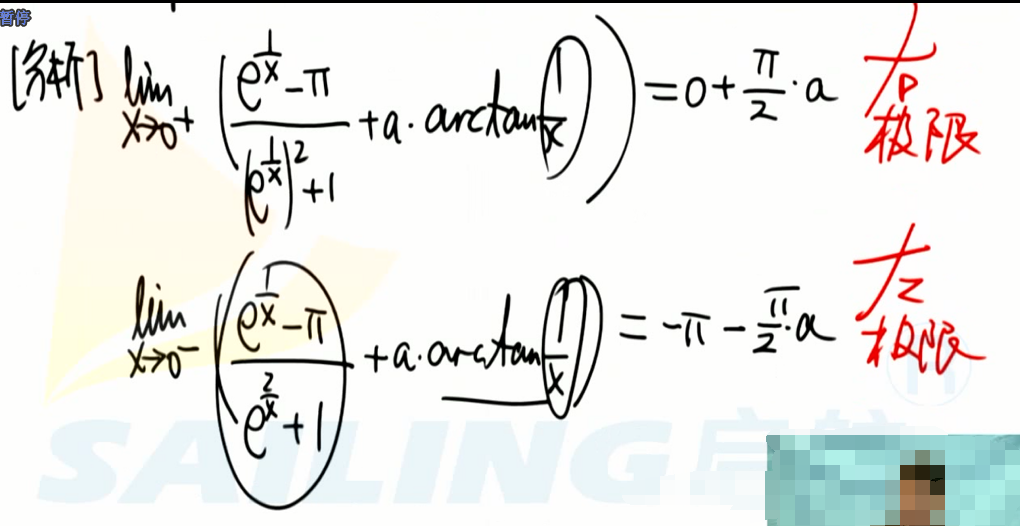 暂停
[分析] lim x→0⁺ ( (e^(1/x) - π) / ((e^(1/x))² + 1) + a · arctan 1/x ) = 0 + π/2 · a 右极限
lim x→0⁻ ( (e^(1/x) - π) / (e^(2/x) + 1) + a · arctan 1/x ) = -π - π/2 · a 左极限
SAILING启航